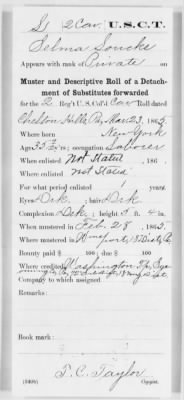 S 2 Cav U.S.C.T.
Selma
Appears with rank of Private on
Muster and Descriptive Roll of a Detach-
ment of Substitutes forwarded
for the 2 Reg't U. S. Col'd Cav Roll dated
Chelton Hills, Pa, Mar 23, 1865
Where born New York
Age 35 y'rs; occupation Laborer
When enlisted Not Stated, 186 .
Where enlisted not stated
For what period enlisted 1 years.
Eyes Drk; hair Drk
Complexion Drk; height ft. 4 in.
When mustered in Feb. 28, 1865.
Where mustered in Wmsport, 18 Dist, Pa
Bounty paid $ 100; due $ 100
Where credited Washington Tp,
18 Dist
Company to which assigned
Remarks:
Book mark:
T. C. Taylor
Copyist.